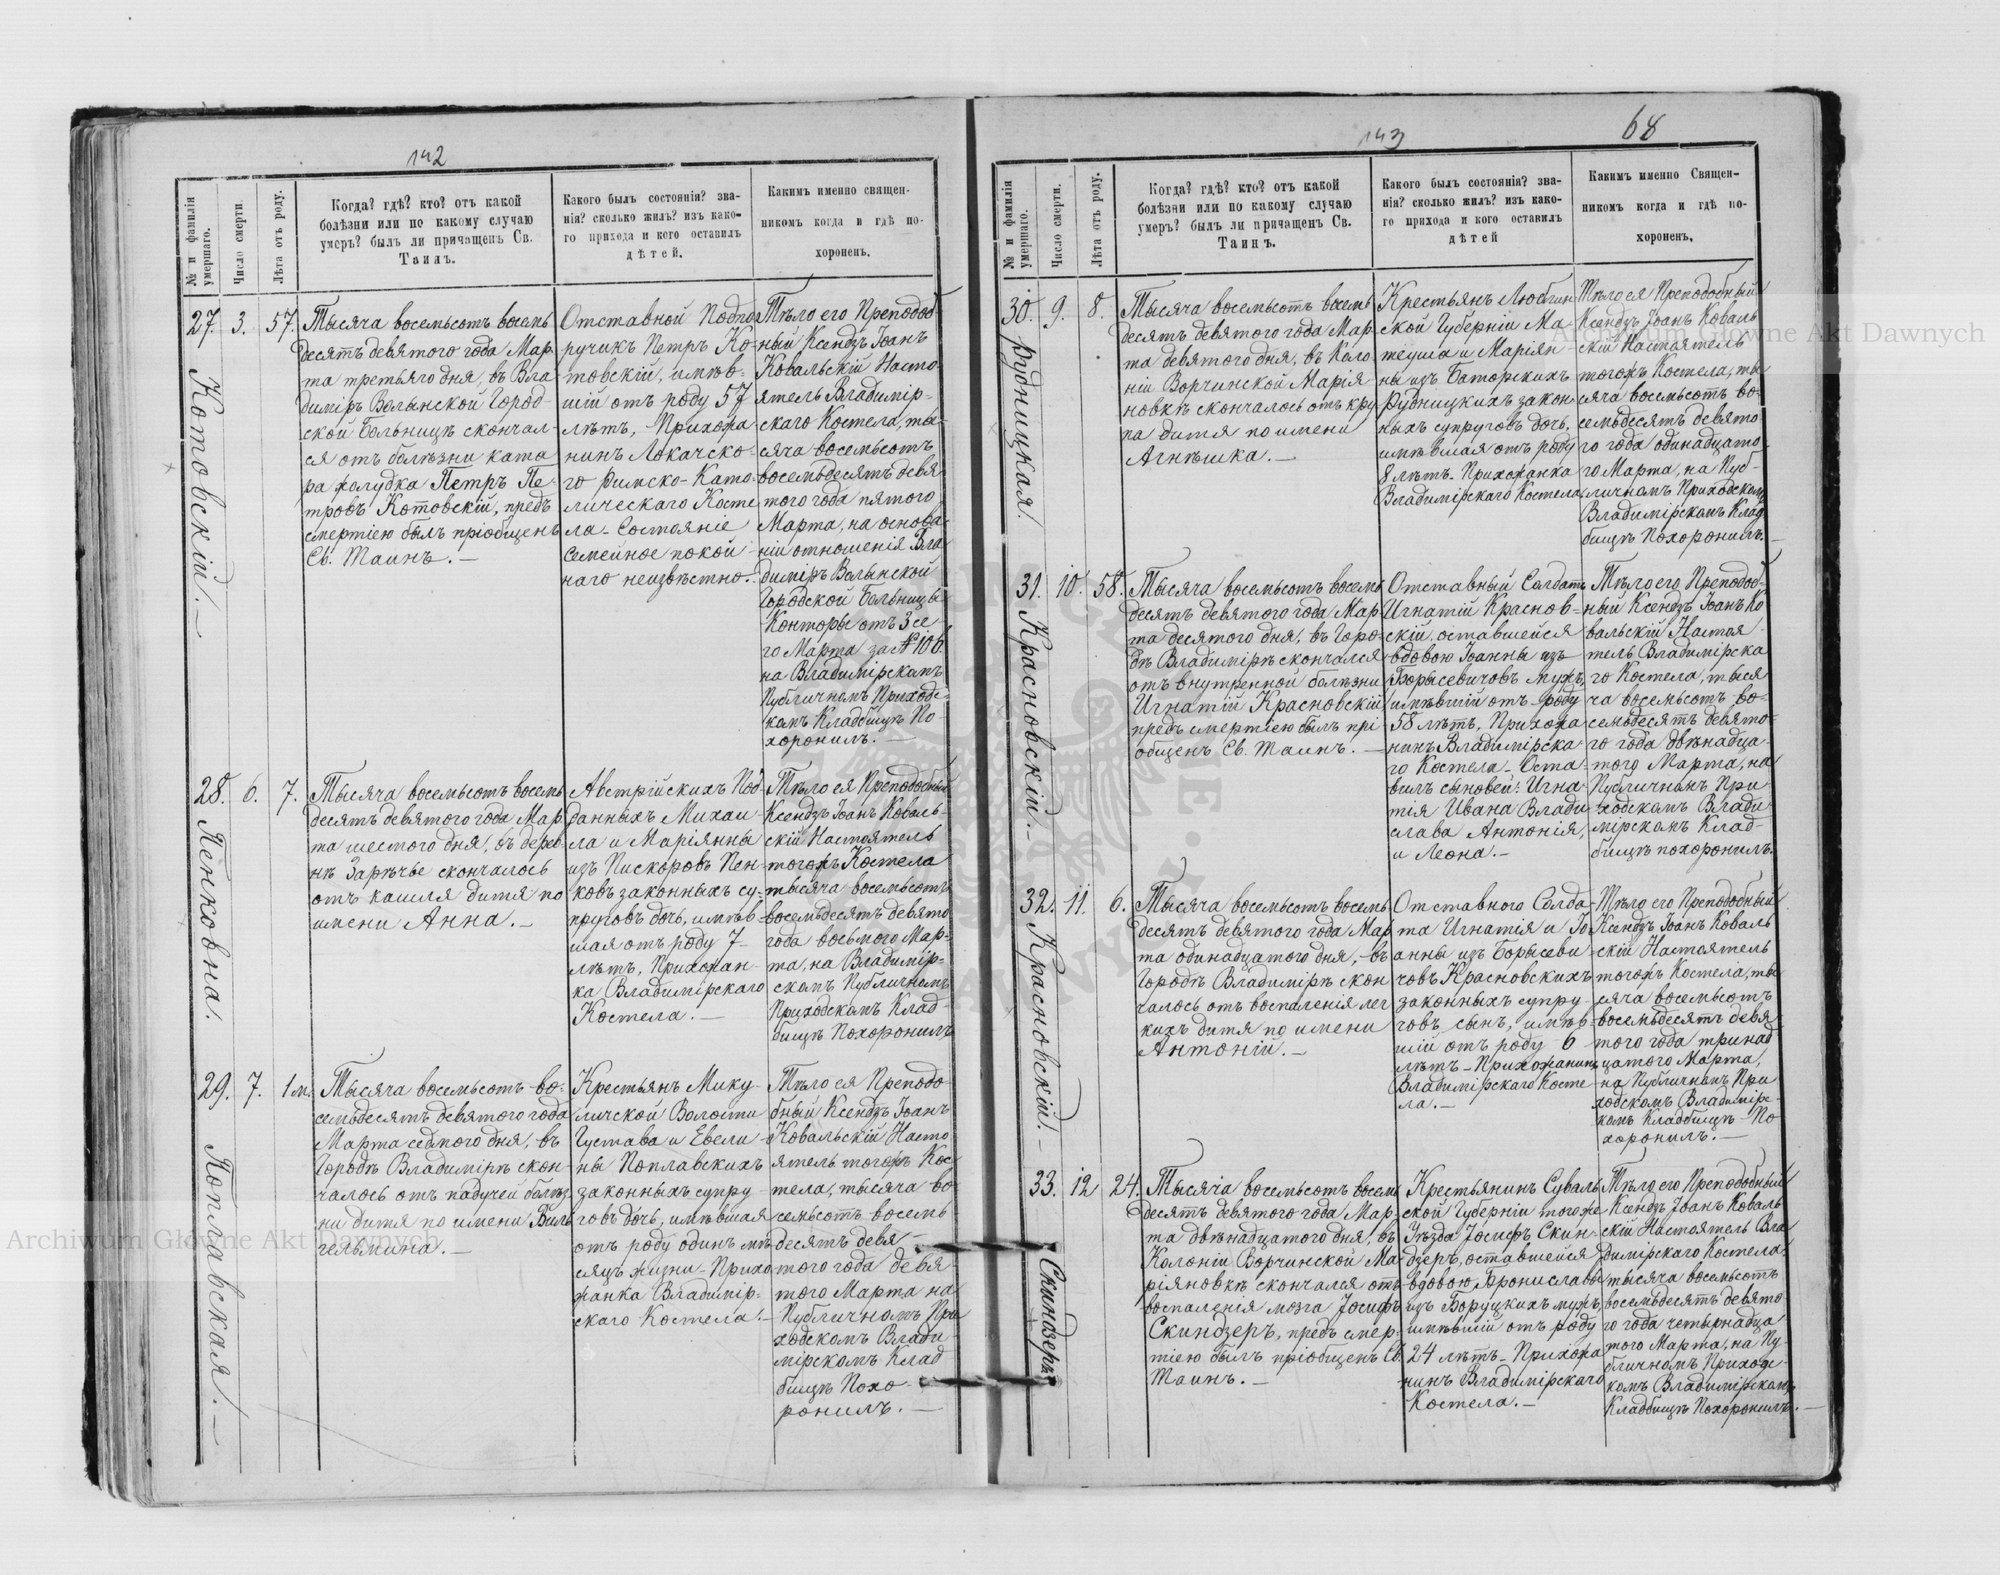 142
№ и фамилія умершаго.
Число смерти.
Лѣта отъ роду.
Когда? гдѣ? кто? отъ какой
болѣзни или по какому случаю
умеръ? былъ ли причащенъ Св.
Таинъ.
Какого былъ состоянія? зва-
нія? сколько жилъ? изъ како-
го прихода и кого оставилъ
дѣтей.
Какимъ именно священ-
никомъ когда и гдѣ по-
хороненъ.
27. 3. 57.
Котовскій.
Тысяча восемьсотъ восемь
десятъ девятого года Мар
та третьяго дня, въ Вла
димірѣ Волынской Город-
ской Больницѣ скончал-
ся отъ болѣзни ката
ра желудка Петръ Пе-
тровъ Котовскій, предъ
смертію былъ пріобщенъ
Св. Таинъ. —
Отставной Подпо
ручикъ Петръ Ко-
товскій, имѣв-
шій отъ роду 57
лѣтъ, Прихожа
нинъ Локачско-
го Римско-Като-
лическаго Косте
ла - Состояніе
Семейное покой-
наго неизвѣстно.
Тѣло его Преподоб
ный Ксендзъ Іоанъ
Ковальскій Насто-
ятель Владимір-
скаго Костела, ты-
сяча восемьсотъ
восемьдесятъ девя
того года пятого
Марта, на основа-
ніи отношенія Вла
диміръ Волынской
Городской Больницы
Конторы отъ 3 се
го Марта за № 106.
на Владимірскомъ
Публичномъ Приход-
скомъ Кладбищѣ По-
хоронилъ. —
28. 6. 7.
Пенковна.
Тысяча восемьсотъ восемь
десятъ девятого года Мар
та шестого дня, въ дерев
нѣ Зарѣчье скончалось
отъ кашля дитя по
имени Анна. —
Австрійскихъ Под
данныхъ Михаи
ла и Маріянны
изъ Пискоровъ Пен-
ковъ законныхъ су-
пруговъ дочь, имѣв-
шая отъ роду 7
лѣтъ, Прихожан-
ка Владимірскаго
Костела. —
Тѣло ея Преподобный
Ксендзъ Іоанъ Коваль-
скій Настоятель
тогожъ Костела
тысяча восемьсотъ
восемьдесятъ девято
года восьмого Мар-
та, на Владимір-
скомъ Публичномъ
Приходскомъ Клад-
бищѣ Похоронилъ
29. 7. 1 м.
Поплавская. —
Тысяча восемьсотъ во-
семьдесятъ девятого года
Марта седмого дня, въ
Городѣ Владимірѣ скон-
чалось отъ падучей болѣз
ни дитя по имени Виль
гельмина. —
Крестьянъ Мику-
личской Волости
Густава и Евели
ны Поплавскихъ
законныхъ супру-
говъ дочь, имѣвшая
отъ роду одинъ мѣ
сяцъ жизни - Прихо
жанка Владимір-
скаго Костела. —
Тѣло ея Преподо-
бный Ксендзъ Іоанъ
Ковальскій Насто
ятель тогожъ Кос
тела, тысяча во-
семьсотъ восемь
десятъ девя-
того года девя-
того Марта на
Публичномъ При
ходскомъ Влади-
мірскомъ Клад
бищѣ Похо-
ронилъ. —
143
68
№ и фамилія умершаго.
Число смерти.
Лѣта отъ роду.
Когда? гдѣ? кто? отъ какой
болѣзни или по какому случаю
умеръ? былъ ли причащенъ Св.
Таинъ.
Какого былъ состоянія? зва-
нія? сколько жилъ? изъ како-
го прихода и кого оставилъ
дѣтей
Какимъ именно Священ-
никомъ когда и гдѣ по-
хороненъ.
30. 9. 8.
Рудницкая.
Тысяча восемьсотъ восемь
десятъ девятого года Мар
та девятого дня, въ Коло
ніи Ворчинской Марія
новкѣ скончалось отъ кру
па дитя по имени
Агнѣшка. —
Крестьянъ Люблин
ской Губерніи Ма-
теуша и Маріян-
ны изъ Баторскихъ
Рудницкихъ закон
ныхъ супруговъ дочь,
имѣвшая отъ роду
8 лѣтъ. Прихожанка
Владимірскаго Костела
Тѣло ея Преподобный
Ксендзъ Іоанъ Коваль
скій Настоятель
тогожъ Костела, ты
сяча восемьсотъ во-
семьдесятъ девято
го года одинадцато-
го Марта, на Пуб-
личномъ Приходскомъ
Владимірскомъ Клад
бищѣ Похоронилъ. —
31. 10. 58.
Красновскій. —
Тысяча восемьсотъ восемь
десятъ девятого года Мар
та десятого дня, въ Горо-
дѣ Владимірѣ скончался
отъ внутренной болѣзни
Игнатій Красновскій
предъ смертію былъ прі
общенъ Св. Таинъ. —
Отставный Солдатъ
Игнатій Краснов-
скій, оставшейся
вдовою Іоанны изъ
Борысевичовъ мужъ,
имѣвшій отъ роду
58 лѣтъ, Прихожа
нинъ Владимірска-
го Костела - Оста-
вилъ сыновей: Игна
тія Ивана Влади
слава Антонія,
и Леона. —
Тѣло его Преподоб-
ный Ксендзъ Іоанъ Ко
вальскій Настоя-
тель Владимірска
го Костела, тыся
ча восемьсотъ во-
семьдесятъ девято-
го года двѣнадца-
того Марта, на
Публичномъ При
ходскомъ Влади
мірскомъ Клад-
бищѣ похоронилъ.
32. 11. 6.
Красновскій. —
Тысяча восемьсотъ восемь
десятъ девятого года Мар
та одинадцатого дня, въ
Городѣ Владимірѣ скон
чалось отъ воспаленія лег
кихъ дитя по имени
Антоній. —
Отставного Солда-
та Игнатія и Іо
анны изъ Борысеви
човъ Красновскихъ
законныхъ супру-
говъ сынъ, имѣв-
шій отъ роду 6
лѣтъ - Прихожанинъ
Владимірскаго Косте-
ла. —
Тѣло его Преподобный
Ксендзъ Іоанъ Коваль
скій Настоятель
тогожъ Костела, ты
сяча восемьсотъ
восемьдесятъ девя
того года тринад
цатого Марта,
на Публичномъ При
ходскомъ Владимірс-
комъ Кладбищѣ По
хоронилъ. —
33. 12 24.
Скиндзеръ
Тысяча восемьсотъ восемь
десятъ девятого года Мар
та двѣнадцатого дня, въ
Колоніи Ворчинской Ма-
ріяновкѣ скончался отъ
воспаленія мозга Іосифъ
Скиндзеръ, предъ смер-
тію былъ пріобщенъ Св.
Таинъ. —
Крестьянинъ Суваль
ской Губерніи тогоже
Уѣзда Іосифъ Скин-
дзеръ, оставшейся
вдовою Брониславы
изъ Боруцкихъ мужъ,
имѣвшій отъ роду
24 лѣтъ - Прихожа
нинъ Владимірскаго
Костела. —
Тѣло его Преподобный
Ксендзъ Іоанъ Коваль
скій Настоятель Вла
димірскаго Костела,
тысяча восемьсотъ
восемьдесятъ девято
го года четырнадца
того Марта, на Пу-
бличномъ Приходс-
комъ Владимірскомъ
Кладбищѣ Похоронилъ. —
Archiwum Główne Akt Dawnych
Archiwum Główne Akt Dawnych